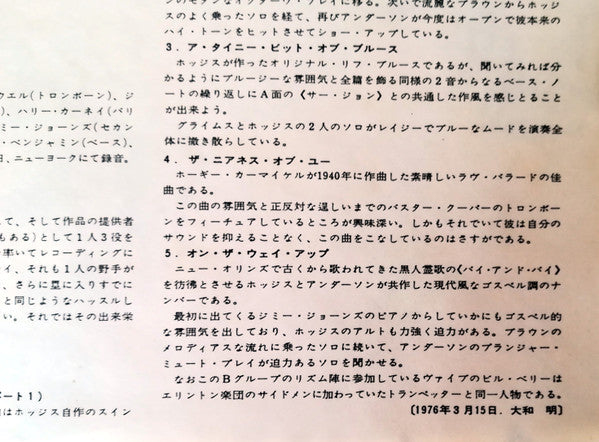 ウエル(トロンボーン)、ジ
)、ハリー・カーネイ(バリ
ミー・ジョーンズ(セカン
・ベンジャミン(ベース)
日、ニューヨークにて録音。
て、そして作品の提供者
もある)として1人3役を
率いてレコーディングに
イ、それも1人の野手が
、さらに塁に入りすでに
と同じようなハッスルし
い。それではその出来栄
ート1)
はホッジス自作のスイン
・プレイに移る。次いで流麗なブラウンからホッジ
スのよく乗ったソロを経て、再びアンダーソンが今度はオープンで彼本来の
ハイ・トーンをヒットさせてショー・アップしている。
3. ア・タイニー・ビット・オブ・ブルース
ホッジスが作ったオリジナル・リフ・ブルースであるが、聞いてみれば分
かるようにブルージーな雰囲気と全篇を飾る同様の2音からなるベース・ノ
ートの繰り返しにA面の〈サー・ジョン〉との共通した作風を感じとること
が出来よう。
グライムスとホッジスの2人のソロがレイジーでブルーなムードを演奏全
体に撒き散らしている。
4. ザ・ニアネス・オブ・ユー
ホーギー・カーマイケルが1940年に作曲した素晴しいラヴ・バラードの佳
曲である。
この曲の雰囲気と正反対な逞しいまでのバスター・クーパーのトロンボー
ンをフィーチュアしているところが興味深い。しかもそれでいて彼は自分の
サウンドを抑えることなく、この曲をこなしているのはさすがである。
5. オン・ザ・ウェイ・アップ
ニュー・オリンズで古くから歌われてきた黒人霊歌の《バイ・アンド・バイ》
を彷彿とさせるホッジスとアンダーソンが共作した現代風なゴスペル調のナ
ンバーである。
最初に出てくるジミー・ジョーンズのピアノからしていかにもゴスペル的
な雰囲気を出しており、ホッジスのアルトも力強く迫力がある。ブラウンの
メロディアスな流れに乗ったソロに続いて、アンダーソンのプランジャー・
ミュート・プレイが迫力あるソロを聞かせる。
なおこのBグループのリズム陣に参加しているヴァイブのビル・ベリーは
エリントン楽団のサイドメンに加わっていたトランペッターと同一人物である。
〔1976年3月15日．大和 明〕